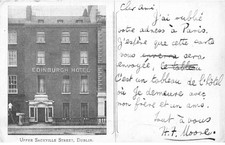 EDINBURGH HOTEL
UPPER SACKVILLE STREET, DUBLIN.
Cher ami
j'ai oublié
votre adress à Paris.
J'espère que cette carte
vous sera
envoyée. Ce tableau
C'est un tableau de l'hôtel
où je demeure avec
mon frère et un ami.
tout à vous